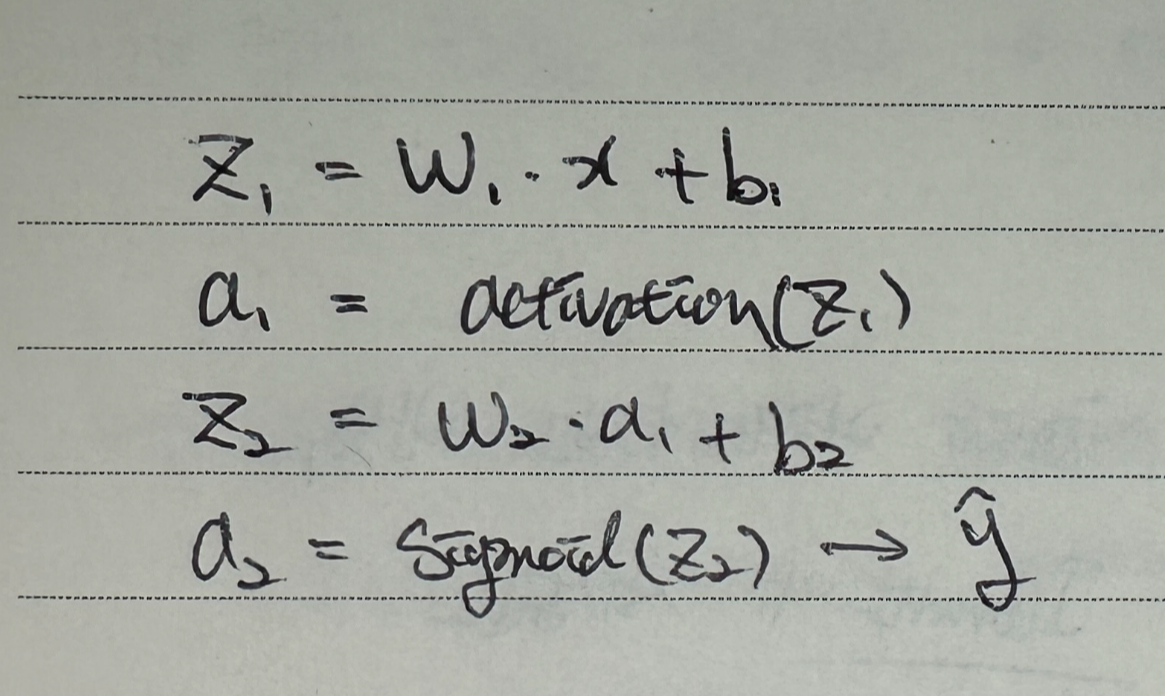 Z₁ = W₁ · x + b₁
a₁ = activation(Z₁)
Z₂ = W₂ · a₁ + b₂
a₂ = Sigmoid(Z₂) → ŷ